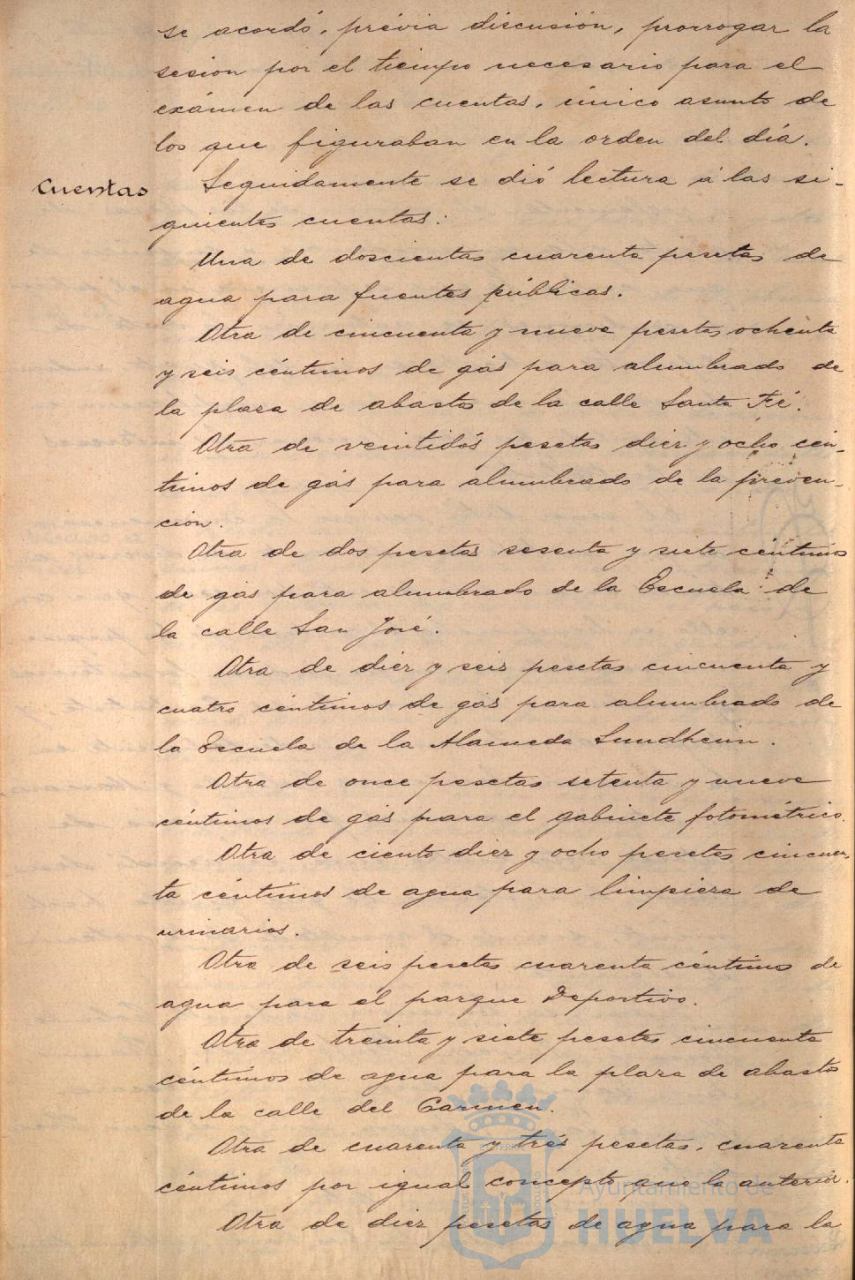 se acordó, prévia discusión, prorrogar la
sesion por el tiempo necesario para el
exámen de las cuentas, único asunto de
los que figuraban en la orden del día.
Cuentas
Seguidamente se dió lectura á las si-
guientes cuentas:
Una de doscientas cuarenta pesetas de
agua para fuentes públicas.
Otra de cincuenta y nueve pesetas ochenta
y seis céntimos de gás para alumbrado de
la plaza de abastos de la calle Santa Fé.
Otra de veintidós pesetas diez y ocho cén-
timos de gás para alumbrado de la preven-
cion.
Otra de dos pesetas sesenta y siete céntimos
de gas para alumbrado de la Escuela de
la calle San José.
Otra de diez y seis pesetas cincuenta y
cuatro céntimos de gás para alumbrado de
la Escuela de la Alameda Sundheim.
Otra de once pesetas setenta y nueve
céntimos de gás para el gabinete fotométrico.
Otra de ciento diez y ocho pesetas cincuen-
ta céntimos de agua para limpieza de
urinarios.
Otra de seis pesetas cuarenta céntimos de
agua para el parque Deportivo.
Otra de treinta y siete pesetas cincuenta
céntimos de agua para la plaza de abastos
de la calle del Carmen.
Otra de cuarenta y trés pesetas, cuarenta
céntimos por igual concepto que la anterior.
Otra de diez pesetas de agua para la
Ayuntamiento de
HUELVA